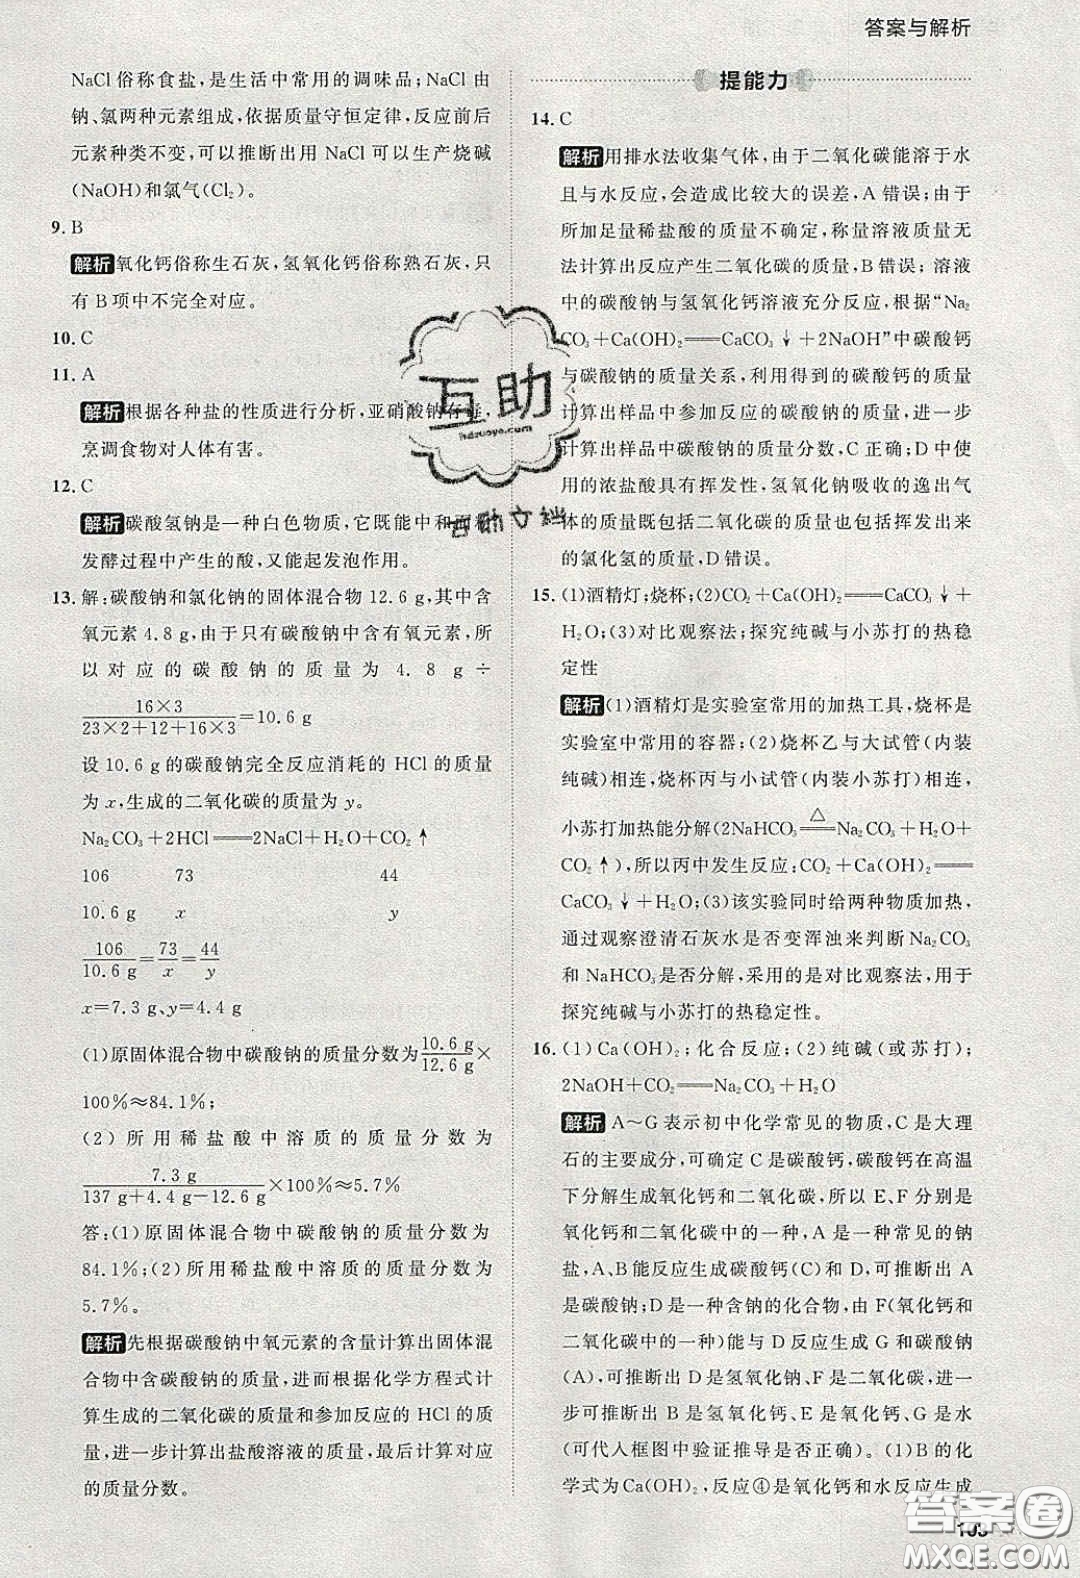 答案与解析
NaCl俗称食盐，是生活中常用的调味品；NaCl由
钠、氯两种元素组成，依据质量守恒定律，反应前后
元素种类不变，可以推断出用NaCl可以生产烧碱
(NaOH)和氯气(Cl₂)。
9. B
解析 氧化钙俗称生石灰，氢氧化钙俗称熟石灰，只
有B项中不完全对应。
10. C
11. A
解析 根据各种盐的性质进行分析，亚硝酸钠有毒，
烹调食物对人体有害。
12. C
解析 碳酸氢钠是一种白色物质，它既能中和面粉
发酵过程中产生的酸，又能起发泡作用。
13. 解：碳酸钠和氯化钠的固体混合物12.6 g，其中含
氧元素4.8 g，由于只有碳酸钠中含有氧元素，所
以对应的碳酸钠的质量为 4.8 g ÷
16×3/23×2+12+16×3=10.6 g
设10.6 g的碳酸钠完全反应消耗的HCl的质量
为x，生成的二氧化碳的质量为y。
Na₂CO₃+2HCl══2NaCl+H₂O+CO₂↑
106 73 44
10.6 g x y
106/10.6 g=73/x=44/y
x=7.3 g、y=4.4 g
(1)原固体混合物中碳酸钠的质量分数为10.6 g/12.6 g×
100%≈84.1%；
(2)所用稀盐酸中溶质的质量分数为
7.3 g/137 g+4.4 g-12.6 g×100%≈5.7%
答：(1)原固体混合物中碳酸钠的质量分数为
84.1%；(2)所用稀盐酸中溶质的质量分数为
5.7%。
解析 先根据碳酸钠中氧元素的含量计算出固体混
合物中含碳酸钠的质量，进而根据化学方程式计
算生成的二氧化碳的质量和参加反应的HCl的质
量，进一步计算出盐酸溶液的质量，最后计算对应
的质量分数。
提能力
14. C
解析 用排水法收集气体，由于二氧化碳能溶于水
且与水反应，会造成比较大的误差，A错误；由于
所加足量稀盐酸的质量不确定，称量溶液质量无
法计算出反应产生二氧化碳的质量，B错误；溶液
中的碳酸钠与氢氧化钙溶液充分反应，根据“Na₂
CO₃+Ca(OH)₂══CaCO₃↓+2NaOH”中碳酸钙
与碳酸钠的质量关系，利用得到的碳酸钙的质量
计算出样品中参加反应的碳酸钠的质量，进一步
计算出样品中碳酸钠的质量分数，C正确；D中使
用的浓盐酸具有挥发性，氢氧化钠吸收的逸出气
体的质量既包括二氧化碳的质量也包括挥发出来
的氯化氢的质量，D错误。
15. (1)酒精灯；烧杯；(2)CO₂+Ca(OH)₂══CaCO₃↓+
H₂O；(3)对比观察法；探究纯碱与小苏打的热稳
定性
解析 (1)酒精灯是实验室常用的加热工具，烧杯是
实验室中常用的容器；(2)烧杯乙与大试管(内装
纯碱)相连，烧杯丙与小试管(内装小苏打)相连，
小苏打加热能分解(2NaHCO₃═△═Na₂CO₃+H₂O+
CO₂↑)，所以丙中发生反应：CO₂+Ca(OH)₂══
CaCO₃↓+H₂O；(3)该实验同时给两种物质加热，
通过观察澄清石灰水是否变浑浊来判断Na₂CO₃
和NaHCO₃是否分解，采用的是对比观察法，用于
探究纯碱与小苏打的热稳定性。
16. (1)Ca(OH)₂；化合反应；(2)纯碱(或苏打)；
2NaOH+CO₂══Na₂CO₃+H₂O
解析 A～G表示初中化学常见的物质，C是大理
石的主要成分，可确定C是碳酸钙，碳酸钙在高温
下分解生成氧化钙和二氧化碳，所以E、F分别是
氧化钙和二氧化碳中的一种，A是一种常见的钠
盐，A、B能反应生成碳酸钙和D，可推断出A
是碳酸钠；D是一种含钠的化合物，由F(氧化钙和
二氧化碳中的一种)能与D反应生成G和碳酸钠
(A)，可推断出D是氢氧化钠、F是二氧化碳，进一
步可推断出B是氢氧化钙、E是氧化钙，G是水
(可代入框图中验证推导是否正确)。(1)B的化
学式为Ca(OH)₂，反应④是氧化钙和水反应生成
互助
hdzuoye.com
互助文档
答案圈
MXQE.COM